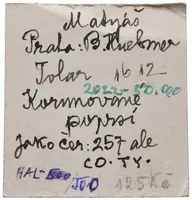 Matyáš
Praha: B. Huebmer
Tolar 1612
2022-50.000
Korunované
poprsí
jako čer: 257 ale
CO-TY.
HAL-500/700 125Kč